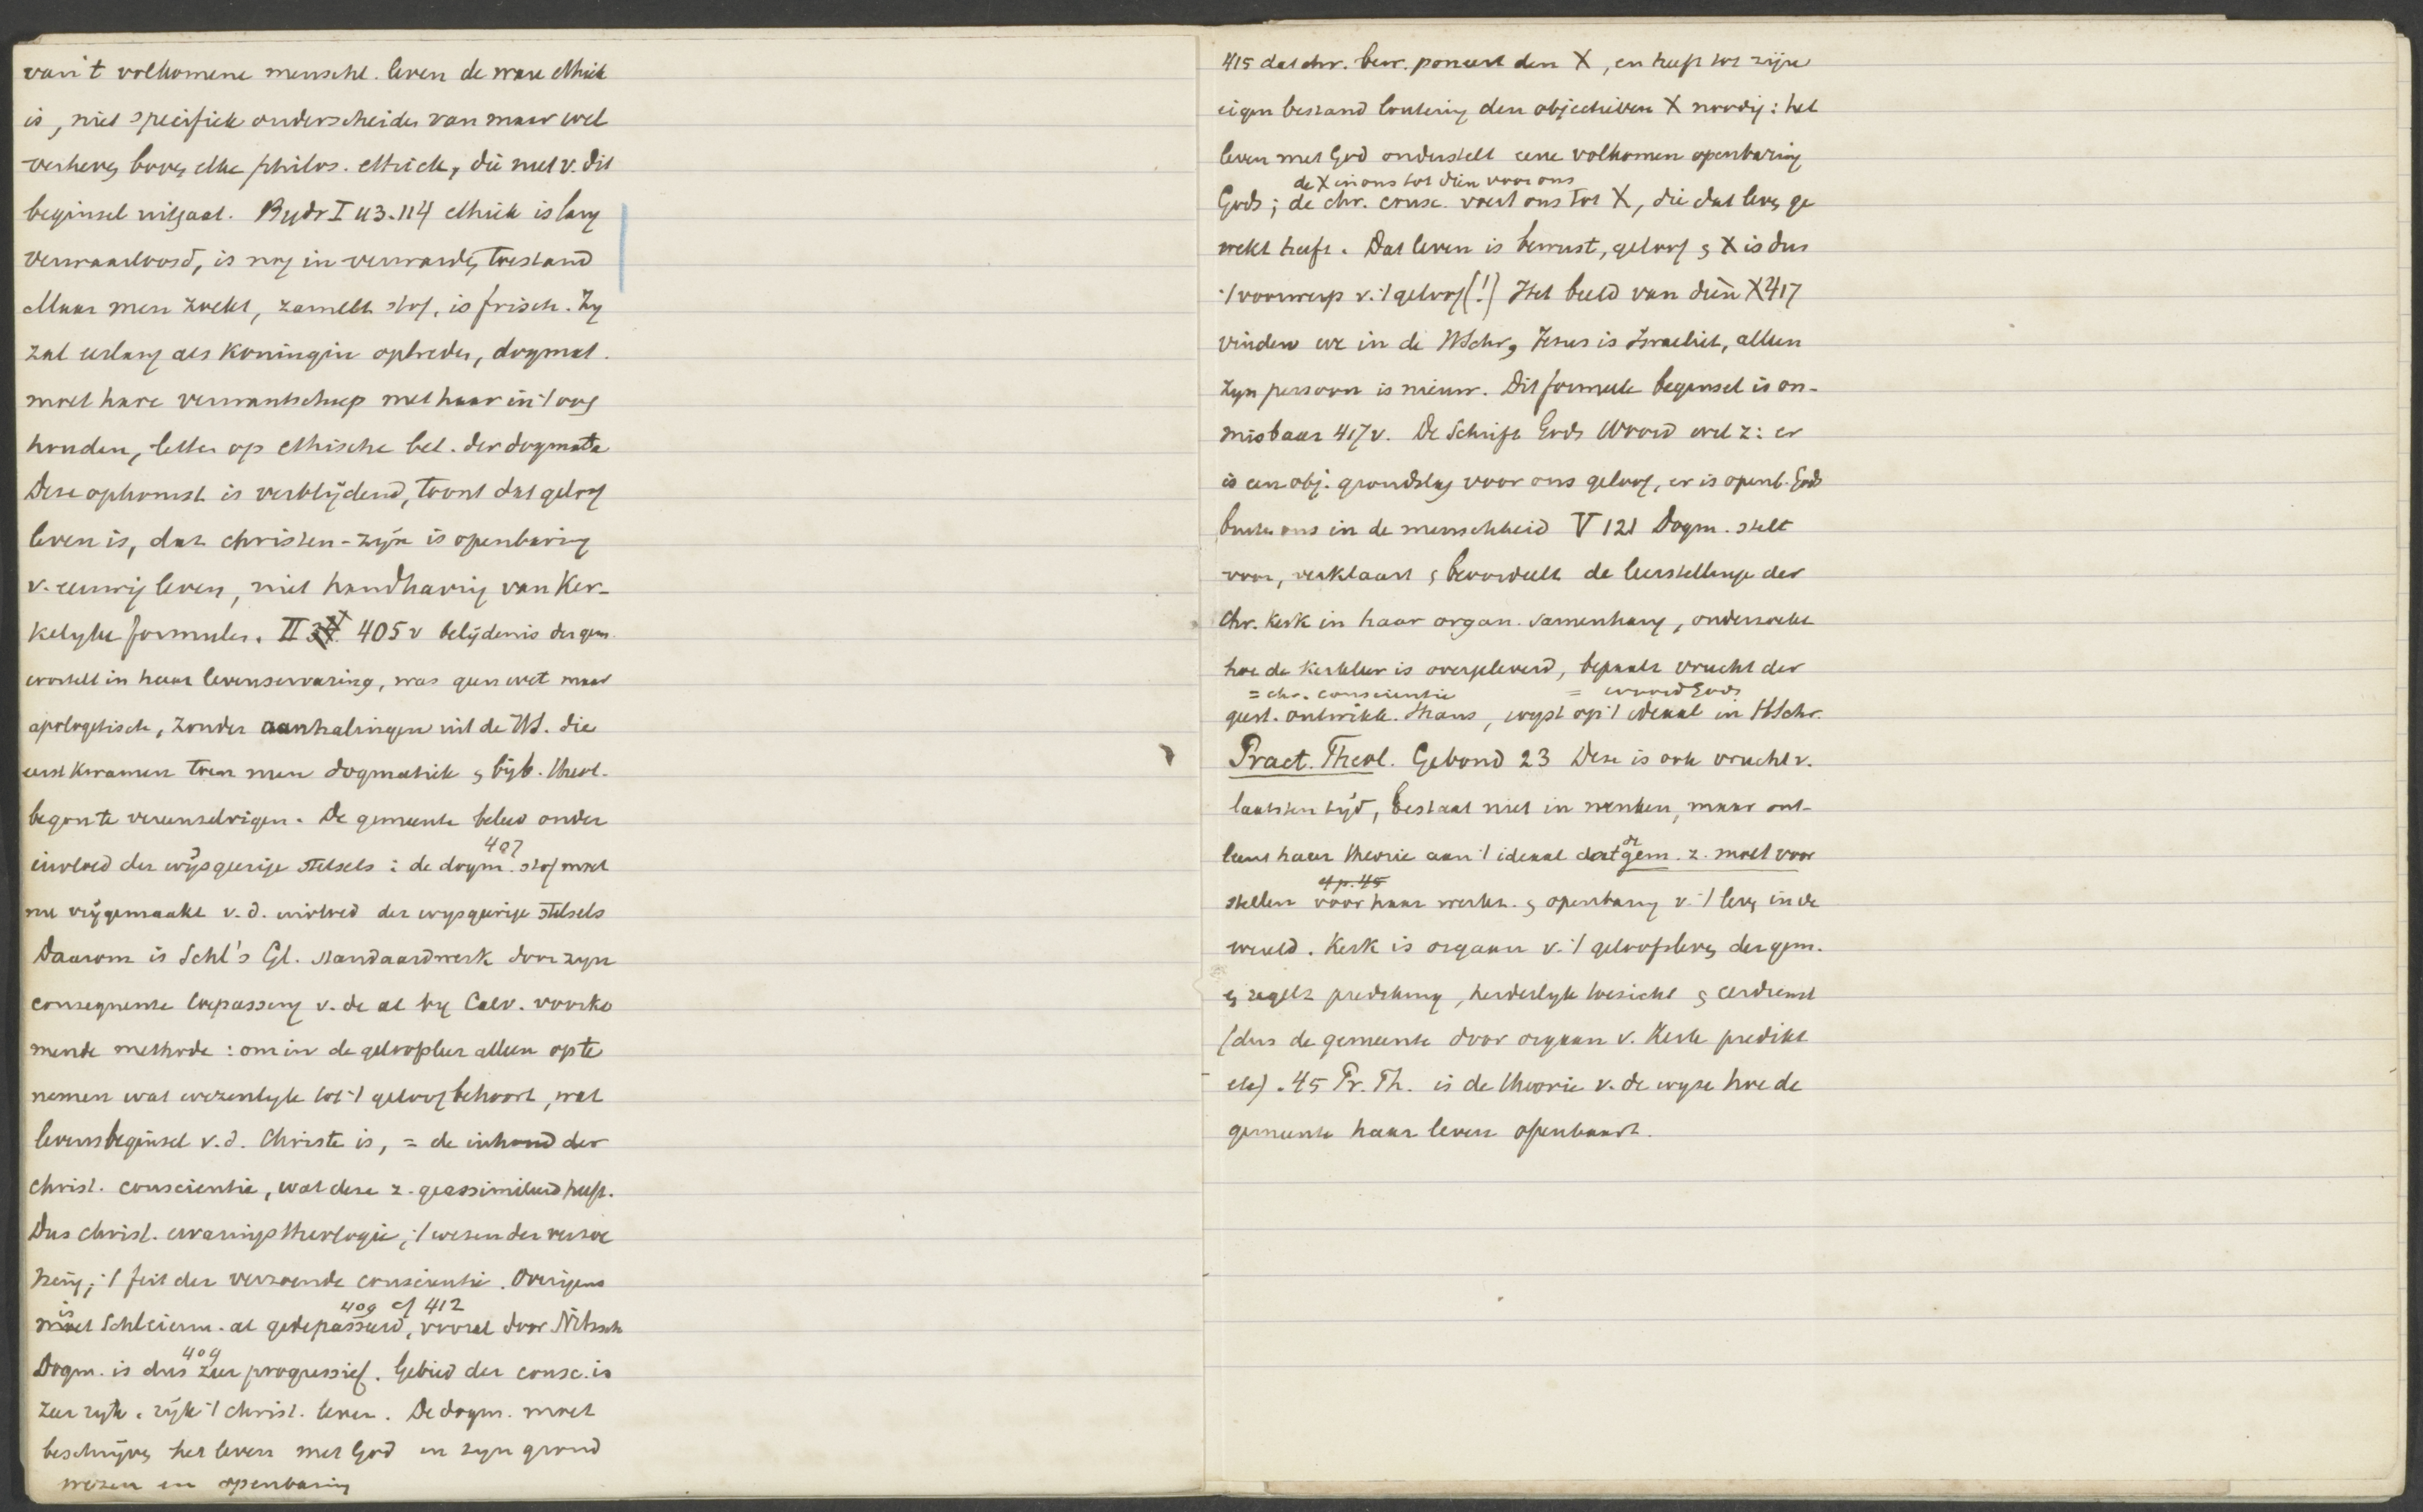 van 't volkomene menschl. leven de ware ethiek
is, niet specifiek onderscheiden van maar wel
verheven boven elke philos. ethiek, die niet v. dit
beginsel uitgaat. Bydr I 113.114 ethiek is lang
verwaarloosd, is nog in verwarde toestand
Maar men zoekt, zamelt stof, is frisch. Zy
zal eerlang als Koningin optreden, dogmat.
moet hare verwantschap met haar in 't oog
houden, letten op ethische bet. der dogmata
Deze opkomst is verblijdend, toont dat geloof
leven is, dat christen-zijn is openbaring
v. eeuwig leven, niet handhaving van Ker-
kelyke formules. II 405 v belijdenis der gem.
wortelt in haar levenservaring, was geen wet maar
apologetisch, zonder aanhalingen uit de HS. die
eerst kwamen toen men dogmatiek & bijb. theol.
begon te vereenzelvigen. De gemeente beleed onder
407
invloed der wijsgeerige stelsels : de dogm. stof moet
nu vrijgemaakt v. d. invloed der wysgeerige stelsels
Daarom is Schl's Gl. standaardwerk door zyn
consequente toepassing v. de al by Calv. voorko
mende methode : om in de geloofsleer alleen op te
nemen wat wezenlyk tot 't geloof behoort, wat
levensbeginsel v. d. Christen is, = de inhoud der
christ. conscientie, wat deze z. geassimileerd heeft.
Dus christ. ervaringstheologie, 't wezen der verzoe
ning, 't feit der verzoende conscientie. Overigens
is 409 cf 412
Schleierm. al gedepasseerd, vooral door Nitzsch
409
Dogm. is dus zeer progressief. Gebied der consc. is
zeer ryk. rijk 't christ. leven. De dogm. moet
beschrijven het leven met God in zyn grond
wezen en openbaring
415 dat chr. bew. poneert den X, en heeft tot zijn
eigen bestand loutering den objectieven X noodig : het
leven met God onderstelt eene volkomen openbaring
de X in ons tot dien voor ons
Gods ; de chr. consc. voert ons tot X, die dat leven ge
wekt heeft. Dat leven is bewust, geloof & X is dus
't voorwerp v. 't geloof (!) Het beeld van dien X 417
vinden we in de HSchr, Jesus is Israeliet, alleen
zyn persoon is nieuw. Dit formeele beginsel is on-
misbaar 417 v. De Schrift Gods Woord wil z : er
is een obj. grondslag voor ons geloof, er is openb. Gods
buiten ons in de menschheid V 121 Dogm. stelt
voor, verklaart & beoordeelt de leerstellingen der
Chr. Kerk in haar organ. samenhang, onderzoekt
hoe de Kerkleer is overgeleverd, bepaalt vrucht der
= chr. conscientie = woord Gods
geest. ontwikk. thans, wyst op 't ideaal in HSchr.
Pract. Theol. Gebond 23 Deze is ook vrucht v.
laatsten tijd, bestaat niet in wenken, maar ont-
de
leent haar theorie aan 't ideaal dat gem. z. moet voor
cf p. 45
stellen voor haar werkz. & openbaring v. 't leven in de
wereld. Kerk is orgaan v. 't geloofsleven der gem.
& regelt prediking, herderlyk toezicht & eerdienst
(dus de gemeente door orgaan v. Kerk predikt
etc). 45 Pr. Th. is de theorie v. de wyze hoe de
gemeente haar leven openbaart.